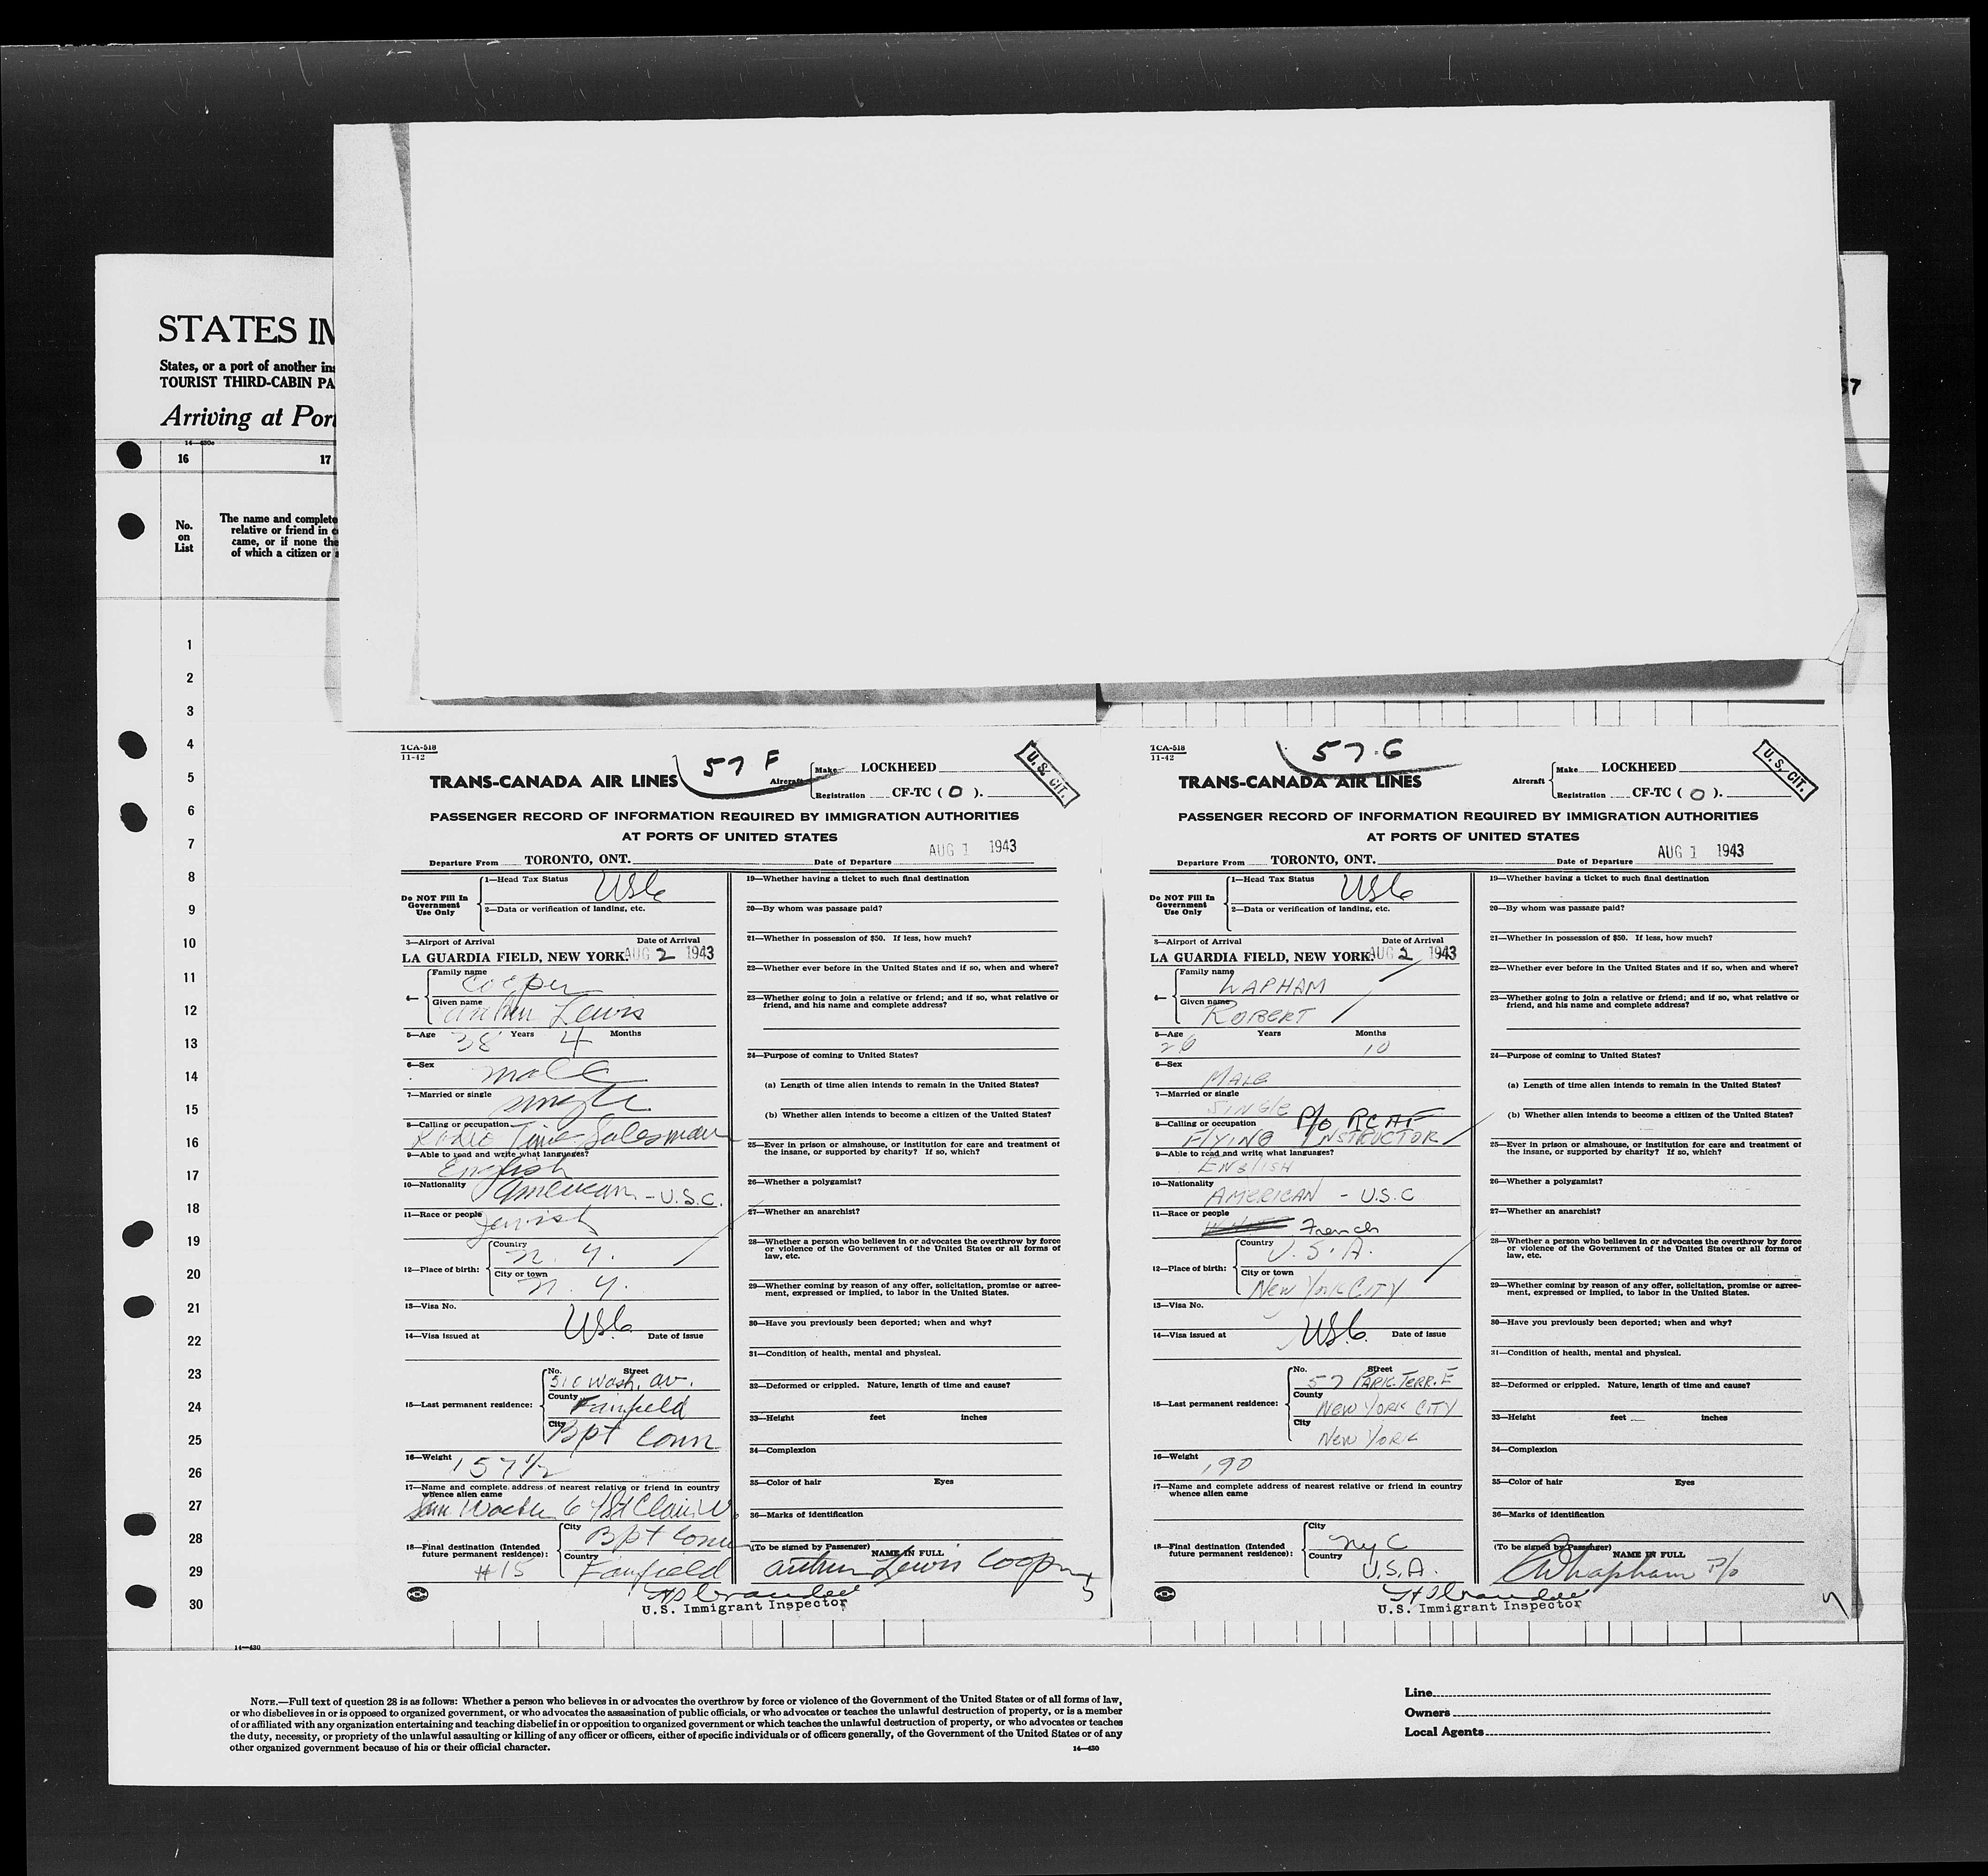 STATES IN
States, or a port of another ins
TOURIST THIRD-CABIN PA
Arriving at Por
57
14—430e
16 17
No.
on
List
The name and complete
relative or friend in c
came, or if none the
of which a citizen or s
1
2
3
4
5
6
7
8
9
10
11
12
13
14
15
16
17
18
19
20
21
22
23
24
25
26
27
28
29
30
TCA-518
11-42
57 F
U.S. CIT.
TRANS-CANADA AIR LINES
Aircraft
Make LOCKHEED
Registration CF-TC ( O ).
PASSENGER RECORD OF INFORMATION REQUIRED BY IMMIGRATION AUTHORITIES
AT PORTS OF UNITED STATES
AUG 1 1943
Departure From TORONTO, ONT. Date of Departure
Do NOT Fill In
Government
Use Only
1—Head Tax Status USC
2—Data or verification of landing, etc.
3—Airport of Arrival Date of Arrival
LA GUARDIA FIELD, NEW YORK. AUG 2 1943
4—
Family name
Cooper
Given name
Arthur Lewis
5—Age 38 Years 4 Months
6—Sex
male
7—Married or single
single
8—Calling or occupation
Radio Time Salesman
9—Able to read and write what languages?
English
10—Nationality American - U.S.C.
11—Race or people
Jewish
12—Place of birth:
Country
N. Y.
City or town
N. Y.
13—Visa No.
USC
14—Visa issued at Date of issue
15—Last permanent residence:
No. Street
510 Wash. av.
County
Fairfield
City
Bpt Conn
16—Weight 157 1/2
17—Name and complete address of nearest relative or friend in country
whence alien came
Sam 64 St Clair W.
18—Final destination (Intended
future permanent residence):
#15
City
Bpt Conn
Country
Fairfield
19—Whether having a ticket to such final destination
20—By whom was passage paid?
21—Whether in possession of $50. If less, how much?
22—Whether ever before in the United States and if so, when and where?
23—Whether going to join a relative or friend; and if so, what relative or
friend, and his name and complete address?
24—Purpose of coming to United States?
(a) Length of time alien intends to remain in the United States?
(b) Whether alien intends to become a citizen of the United States?
25—Ever in prison or almshouse, or institution for care and treatment of
the insane, or supported by charity? If so, which?
26—Whether a polygamist?
27—Whether an anarchist?
28—Whether a person who believes in or advocates the overthrow by force
or violence of the Government of the United States or all forms of
law, etc.
29—Whether coming by reason of any offer, solicitation, promise or agree-
ment, expressed or implied, to labor in the United States.
30—Have you previously been deported; when and why?
31—Condition of health, mental and physical.
32—Deformed or crippled. Nature, length of time and cause?
33—Height feet inches
34—Complexion
35—Color of hair Eyes
36—Marks of identification
(To be signed by Passenger) NAME IN FULL
Arthur Lewis Cooper
U.S. Immigrant Inspector
TCA-518
11-42
57-G
U.S. CIT.
TRANS-CANADA AIR LINES
Aircraft
Make LOCKHEED
Registration CF-TC ( O ).
PASSENGER RECORD OF INFORMATION REQUIRED BY IMMIGRATION AUTHORITIES
AT PORTS OF UNITED STATES
AUG 1 1943
Departure From TORONTO, ONT. Date of Departure
Do NOT Fill In
Government
Use Only
1—Head Tax Status USC
2—Data or verification of landing, etc.
3—Airport of Arrival Date of Arrival
LA GUARDIA FIELD, NEW YORK. AUG 2 1943
4—
Family name
WAPHAM
Given name
ROBERT
5—Age Years Months
26 10
6—Sex
MALE
7—Married or single
SINGLE
8—Calling or occupation P/O RCAF
FLYING INSTRUCTOR
9—Able to read and write what languages?
ENGLISH
10—Nationality
AMERICAN - U.S.C
11—Race or people
French
12—Place of birth:
Country
U.S.A.
City or town
NEW YORK CITY
13—Visa No.
14—Visa issued at USC Date of issue
15—Last permanent residence:
No. Street
57 PARK TERR. E
County
NEW YORK CITY
City
NEW YORK
16—Weight
190
17—Name and complete address of nearest relative or friend in country
whence alien came
18—Final destination (Intended
future permanent residence):
City
NYC
Country
U.S.A.
19—Whether having a ticket to such final destination
20—By whom was passage paid?
21—Whether in possession of $50. If less, how much?
22—Whether ever before in the United States and if so, when and where?
23—Whether going to join a relative or friend; and if so, what relative or
friend, and his name and complete address?
24—Purpose of coming to United States?
(a) Length of time alien intends to remain in the United States?
(b) Whether alien intends to become a citizen of the United States?
25—Ever in prison or almshouse, or institution for care and treatment of
the insane, or supported by charity? If so, which?
26—Whether a polygamist?
27—Whether an anarchist?
28—Whether a person who believes in or advocates the overthrow by force
or violence of the Government of the United States or all forms of
law, etc.
29—Whether coming by reason of any offer, solicitation, promise or agree-
ment, expressed or implied, to labor in the United States.
30—Have you previously been deported; when and why?
31—Condition of health, mental and physical.
32—Deformed or crippled. Nature, length of time and cause?
33—Height feet inches
34—Complexion
35—Color of hair Eyes
36—Marks of identification
(To be signed by Passenger) NAME IN FULL
P/O
U.S. Immigrant Inspector
14—430
NOTE.—Full text of question 28 is as follows: Whether a person who believes in or advocates the overthrow by force or violence of the Government of the United States or of all forms of law,
or who disbelieves in or is opposed to organized government, or who advocates the assassination of public officials, or who advocates or teaches the unlawful destruction of property, or is a member
of or affiliated with any organization entertaining and teaching disbelief in or opposition to organized government or which teaches the unlawful destruction of property, or who advocates or teaches
the duty, necessity, or propriety of the unlawful assaulting or killing of any officer or officers, either of specific individuals or of officers generally, of the Government of the United States or of any
other organized government because of his or their official character.
14—430
Line
Owners
Local Agents